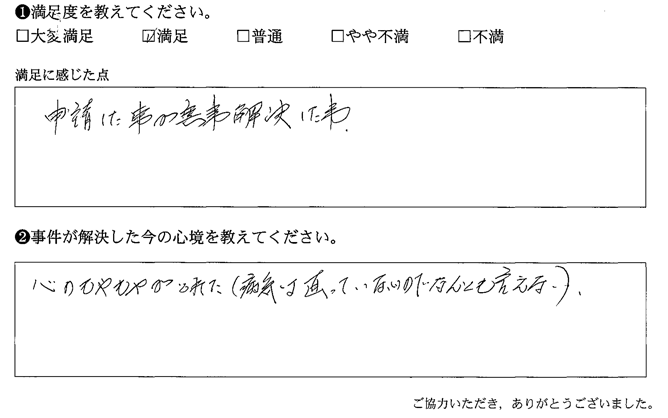 ❶満足度を教えてください。
□大変満足 ☑満足 □普通 □やや不満 □不満
満足に感じた点
申請した事が無事解決した事.
❷事件が解決した今の心境を教えてください。
心のもやもやがとれた(病気は直っていないのでなんとも言えない).
ご協力いただき，ありがとうございました。